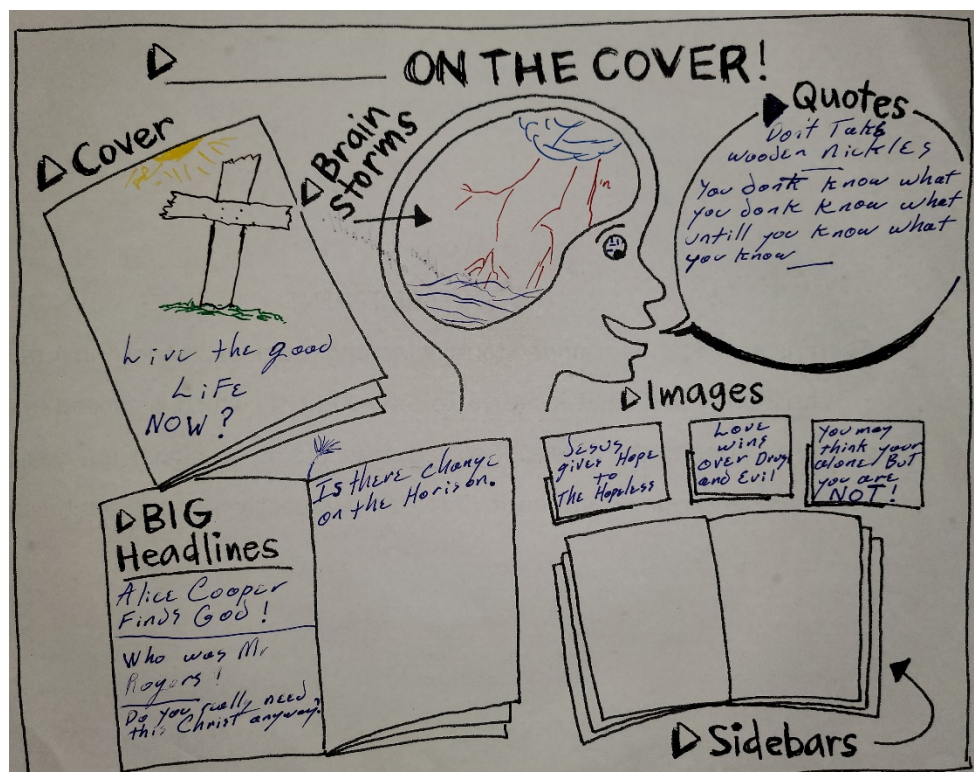 ON THE COVER!
Cover
Live the good
LiFE
NOW?
Brain
Storms
Quotes
Don't Take
wooden nickles
You donk know what
you donk know what
untill you know what
you know
Images
Jesus
gives Hope
to
The Hopeless
Love
wins
over Drugs
and Evil
You may
think your
alone, But
you are
NOT!
BIG
Headlines
Alice Cooper
Finds God!
Who was Mr
Rogers!
Do you really need
this Christ anyway?
Is there change
on the Horison.
Sidebars